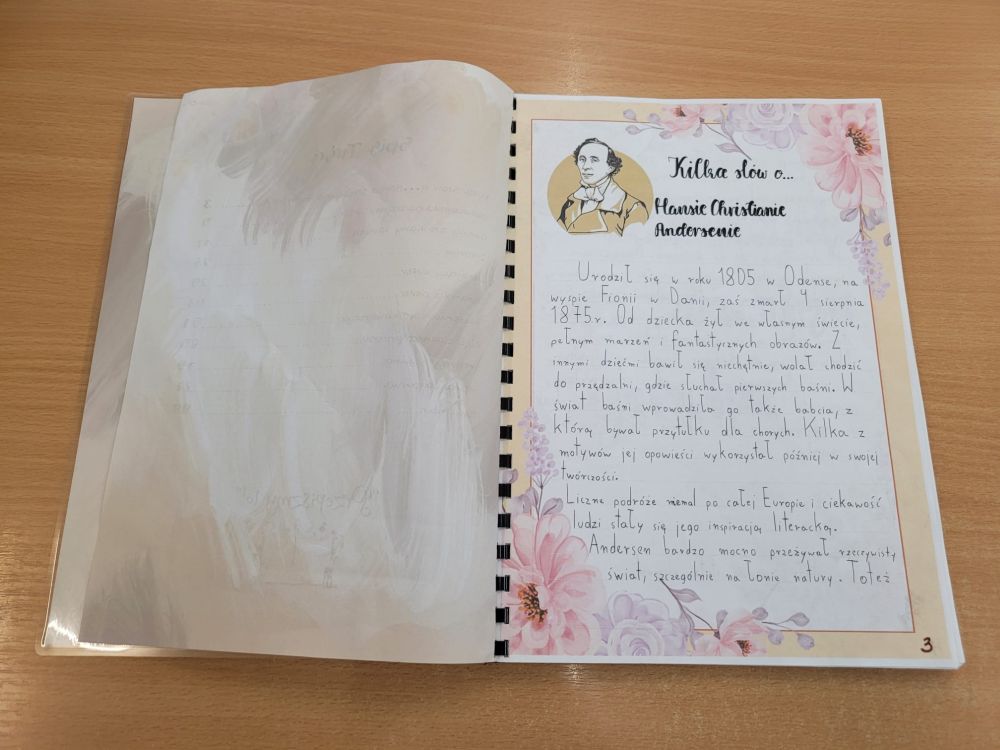 Kilka słów o...
Hansie Christianie
Andersenie
Urodził się w roku 1805 w Odense, na
wyspie Fionii w Danii, zaś zmarł 4 sierpnia
1875r. Od dziecka żył we własnym świecie,
pełnym marzeń i fantastycznych obrazów. Z
innymi dziećmi bawił się niechętnie, wolał chodzić
do przędzalni, gdzie słuchał pierwszych baśni. W
świat baśni wprowadziła go także babcia, z
którą bywał przytułku dla chorych. Kilka z
motywów jej opowieści wykorzystał później w swojej
twórczości.
Liczne podróże niemal po całej Europie i ciekawość
ludzi stały się jego inspiracją literacką.
Andersen bardzo mocno przeżywał rzeczywisty
świat, szczególnie na łonie natury. Toteż
3